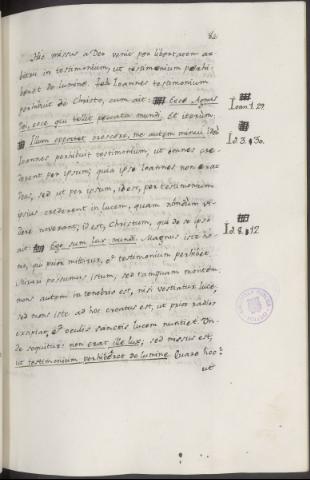 82
Hic missus a Deo venit per libertatem ar
bitrii in testimonium, ut testimonium perhi-
beret de lumine. Ioannes testimonium
perhibuit de Christo, cum ait: Ecce Agnus
Dei, ecce qui tollit peccata mundi. Et iterum.
Ioan. 1. 29.
Illum oportet crescere, me autem minui. Ideo
Id. 3. 30.
Ioannes perhibuit testimonium, ut omnes cre-
derent per ipsum; quia ipse Ioannes non erat
Deus, sed ut per ipsum, id est, per testimonium
ipsius crederent in lucem, quam nondum vi-
dere noverant; id est, Christum, qui de se ipso
ait: Ego sum lux mundi. Magnus iste ho-
Id. 8. 12
mo, qui prior mititur, et testimonium perhibet.
Mirari possumus istum, sed tamquam montem.
mons autem in tenebris est, nisi vestiatur luce,
sed mons iste ad hoc creatus est, ut prior radios
excipiat, et oculis sanctis lucem nuntiet. Un-
de sequitur: non erat ille lux, sed missus est,
ut testimonium perhiberet de lumine. Quare hoc?
ut